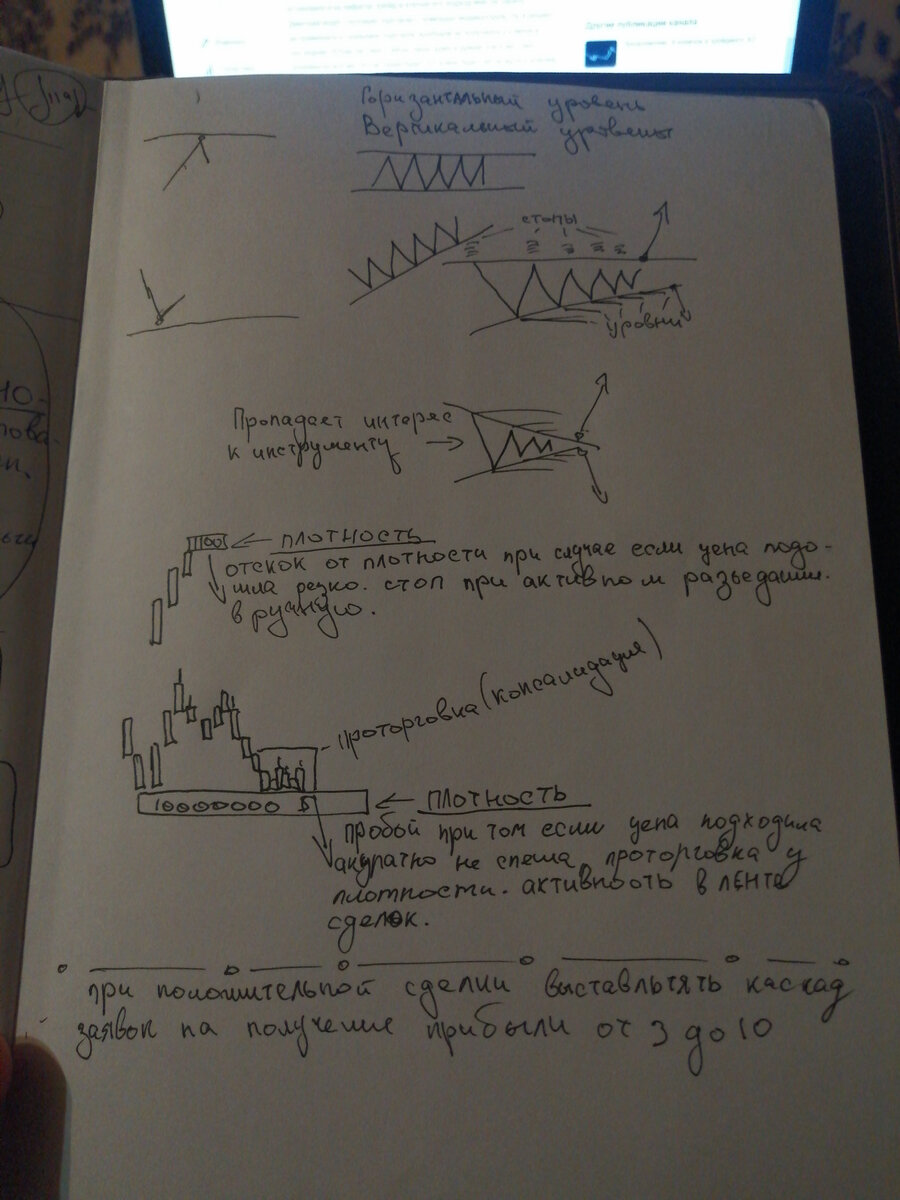 Горизантальный уровень
Вертикальный уровень
стопы
уровни
Пропадает интерес
к инструменту
100
плотность
отскок от плотности при случае если цена подо-
шла резко. стоп при активном разъедании.
в ручную.
проторговка (консалидация)
10000000 $
плотность
пробой при том если цена подходила
акуратно не спеша, проторговка у
плотности. активность в ленте
сделок.
при положительной сделки выставльтять каскад
заявок на получение прибыли от 3 до 10